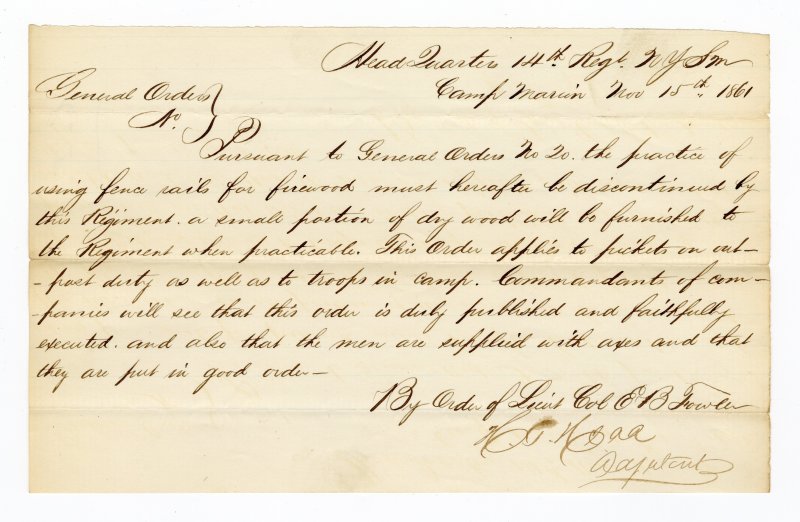 Head Quarters 14th Regt. N Y S m
Camp Marion Nov 15th, 1861
General Orders }
No }
Pursuant to General Orders No 20. the practice of
using fence rails for firewood must hereafter be discontinued by
this Regiment. a small portion of dry wood will be furnished to
the Regiment when practicable. This Order applies to pickets on out-
-post duty as well as to troops in camp. Commandants of com-
-panies will see that this order is duly published and faithfully
executed. and also that the men are supplied with axes and that
they are put in good order-
By Order of Lieut Col E B Fowler
Adjutant